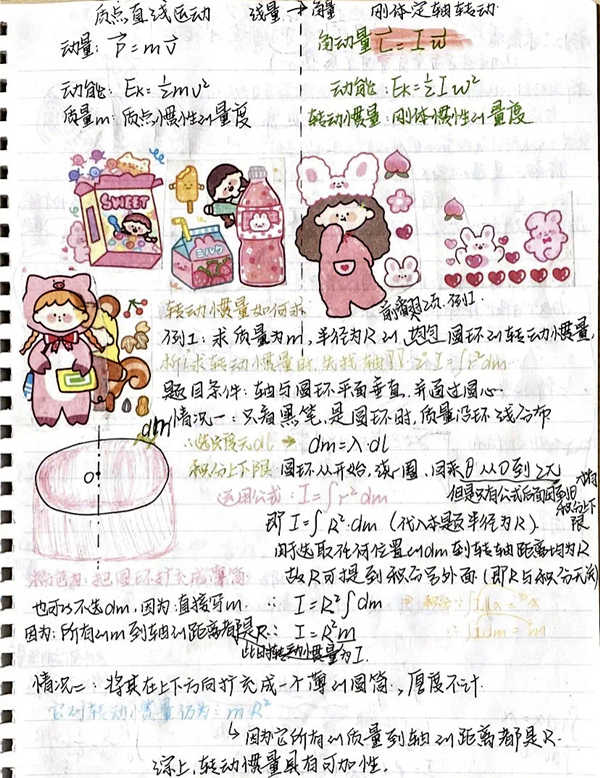 质点直线运动 线量→角量 刚体定轴转动
动量: P=mv 角动量 L=Iw
动能: Ek=½mv² 动能: Ek=½Iw²
质量m: 质点惯性的量度 转动惯量: 刚体惯性的量度
SWEET
ミルク
转动惯量如何求 前翻2页. 例1.
例1: 求质量为m, 半径为R的均匀圆环的转动惯量,
析: 求转动惯量时, 先找轴 I=∫r²dm
题目条件: 轴与圆环平面垂直, 并通过圆心
dm 情况一: 只看黑笔, 是圆环时, 质量沿环线分布
∴选长度元dl → dm=λ·dl
积分上下限 圆环从开始, 绕一圈, 回来 θ从0到2π
运用公式: I=∫r²dm 但是只有公式后面图到θ 积分上下限
O
即 I=∫R²·dm (代入本题半径为R).
因所选取任何位置的dm到转轴距离均为R
粉色为: 把圆环扩充成薄筒 故R可提到积分号外面 (即R与积分无关)
也可以不选dm, 因为: 直接写m. ∴ I=R²∫dm 积分: ∫dx=x
因为: 所有的m到轴的距离都是R∴ I=R²m ∴∫dm=m
此时转动惯量为I.
情况二: 将其在上下方向扩充成一个薄的圆筒, 厚度不计.
它的转动惯量仍为: mR²
↳因为它所有的质量到轴的距离都是R.
综上, 转动惯量具有可加性.